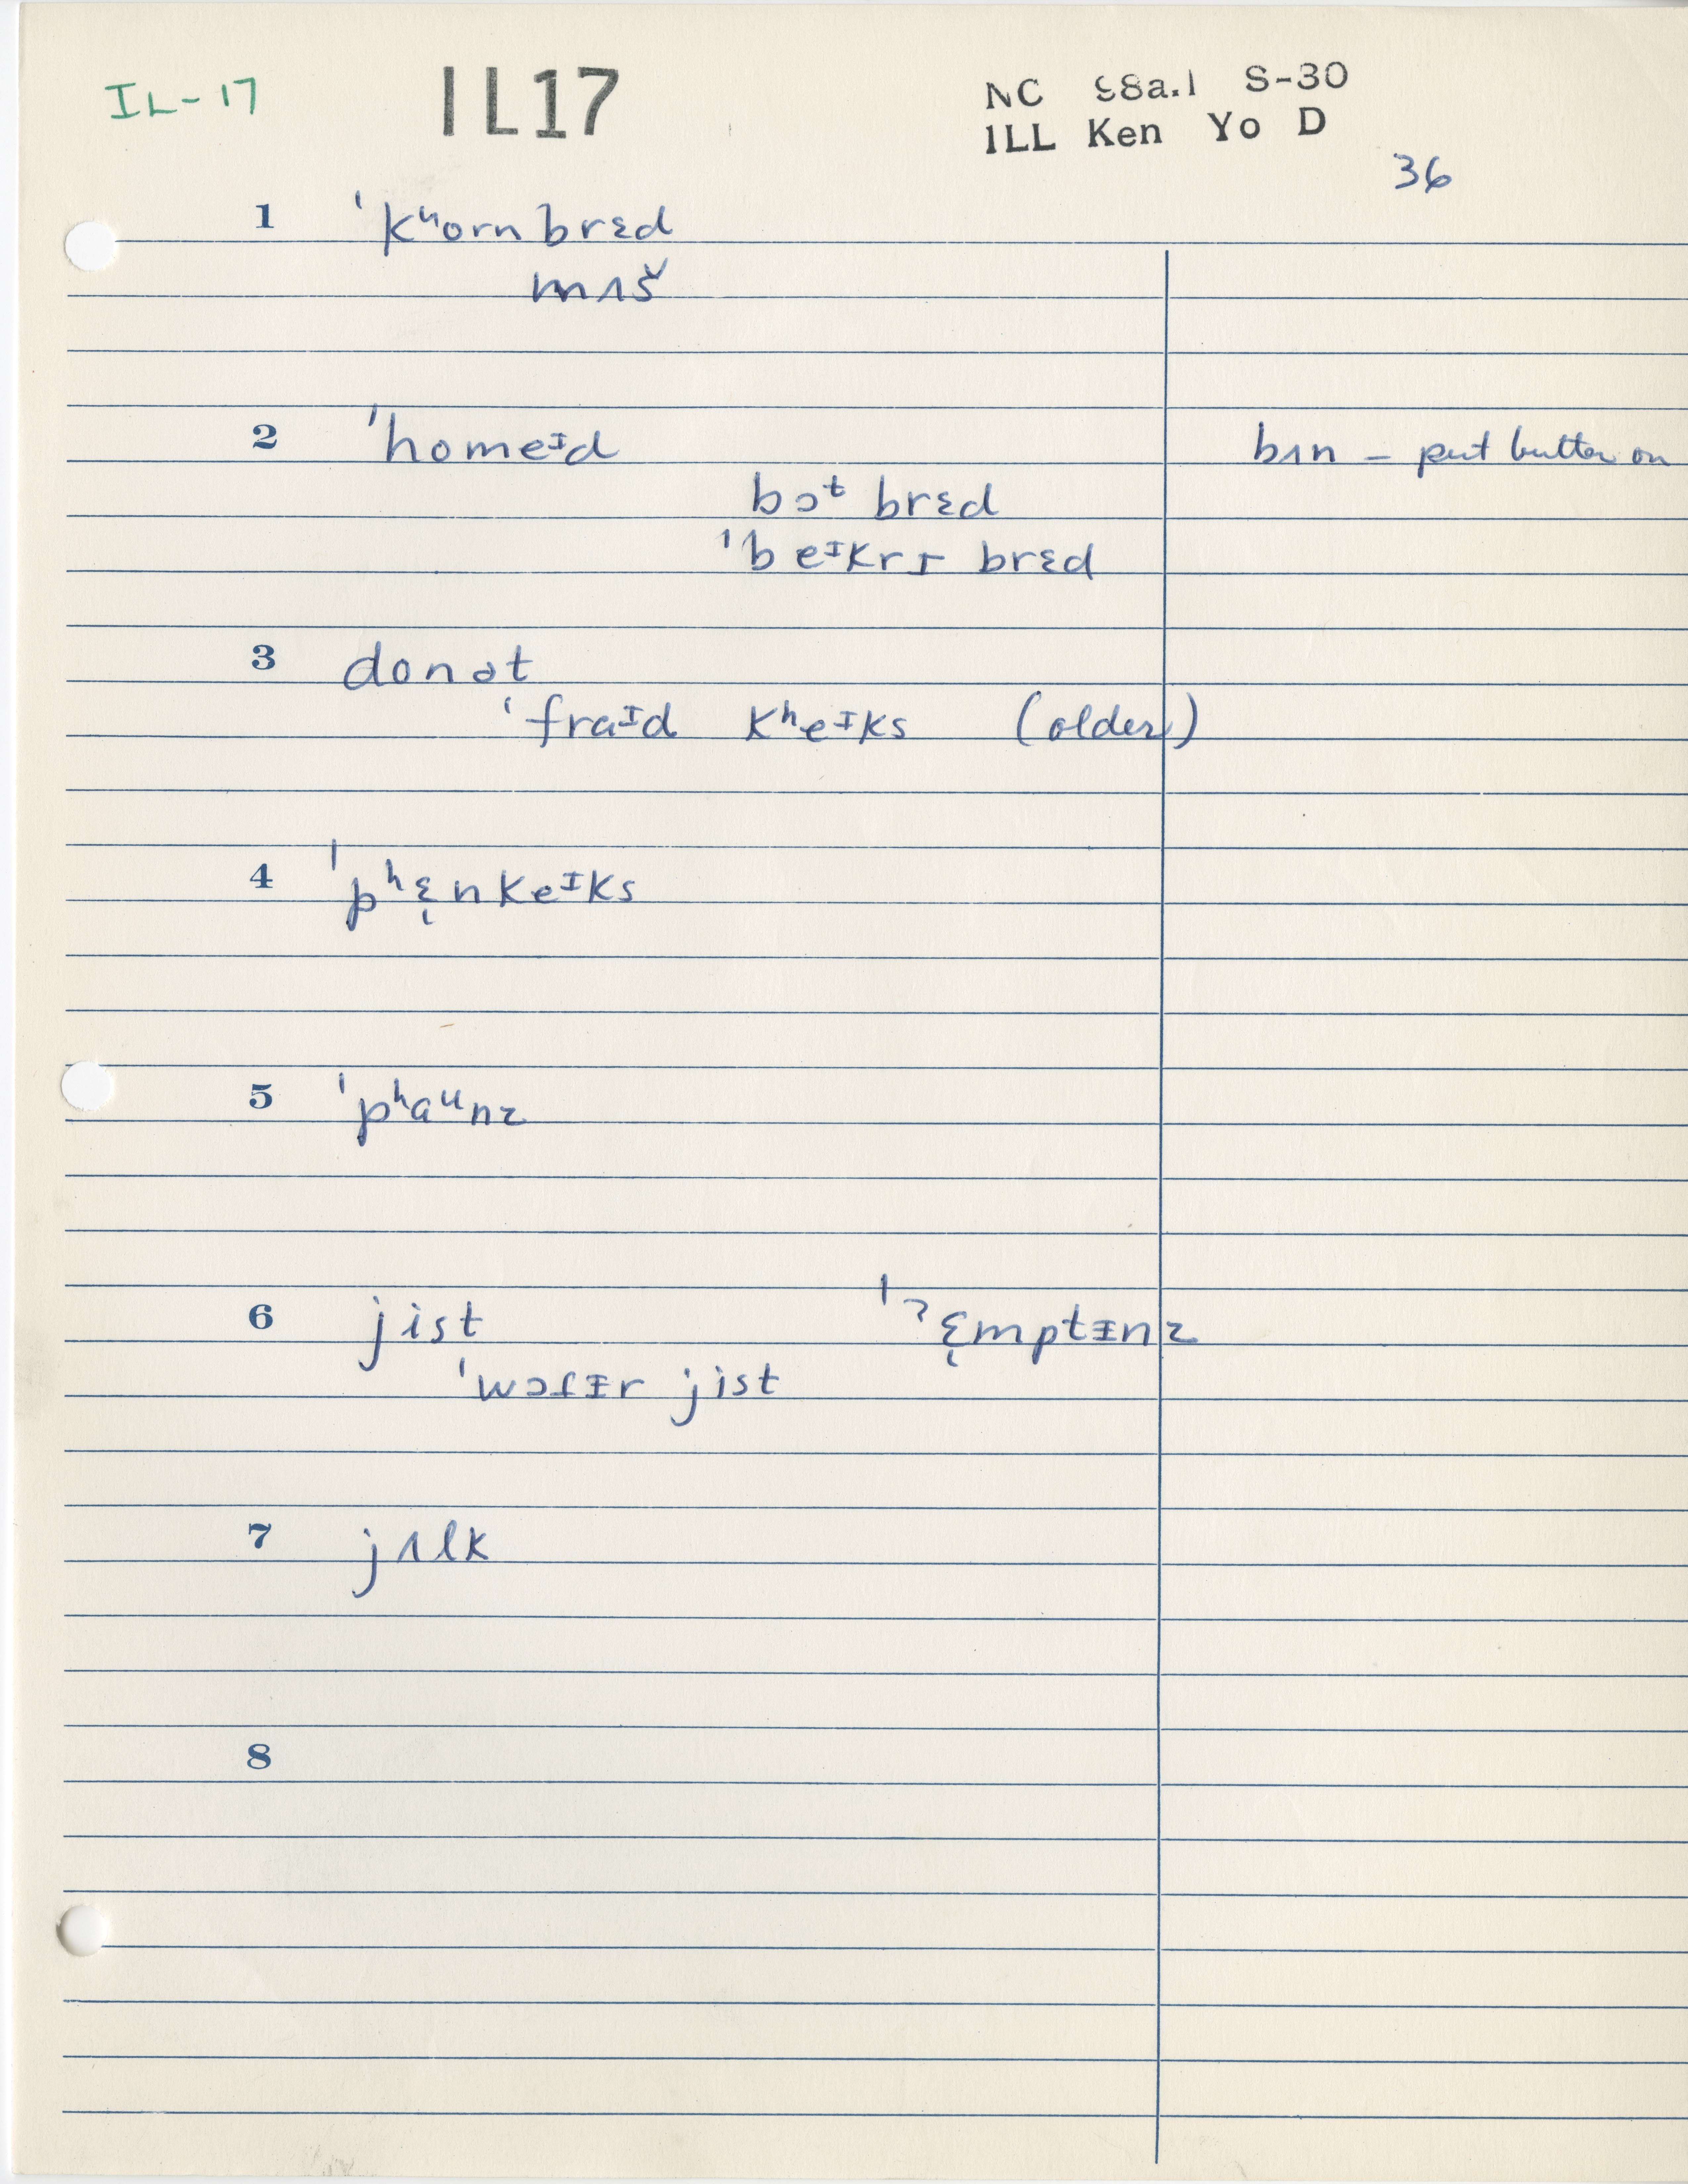 IL-17 IL17 NC 98a.1 S-30
ILL Ken Yo D
36
1 ˈkʰorn brɛd
mʌš
2 ˈhomeᶦd bʌn – put butter on
bɔᵗ brɛd
ˈbeᶦkrɪ brɛd
3 donət
ˈfraᶦd kʰeᶦks (older)
4 ˈpʰɛ̨nkeᶦks
5 ˈpʰaᵘnz
6 jist ˈˀɛ̨mptɪnz
ˈwɔɾɪr jist
7 jʌlk
8